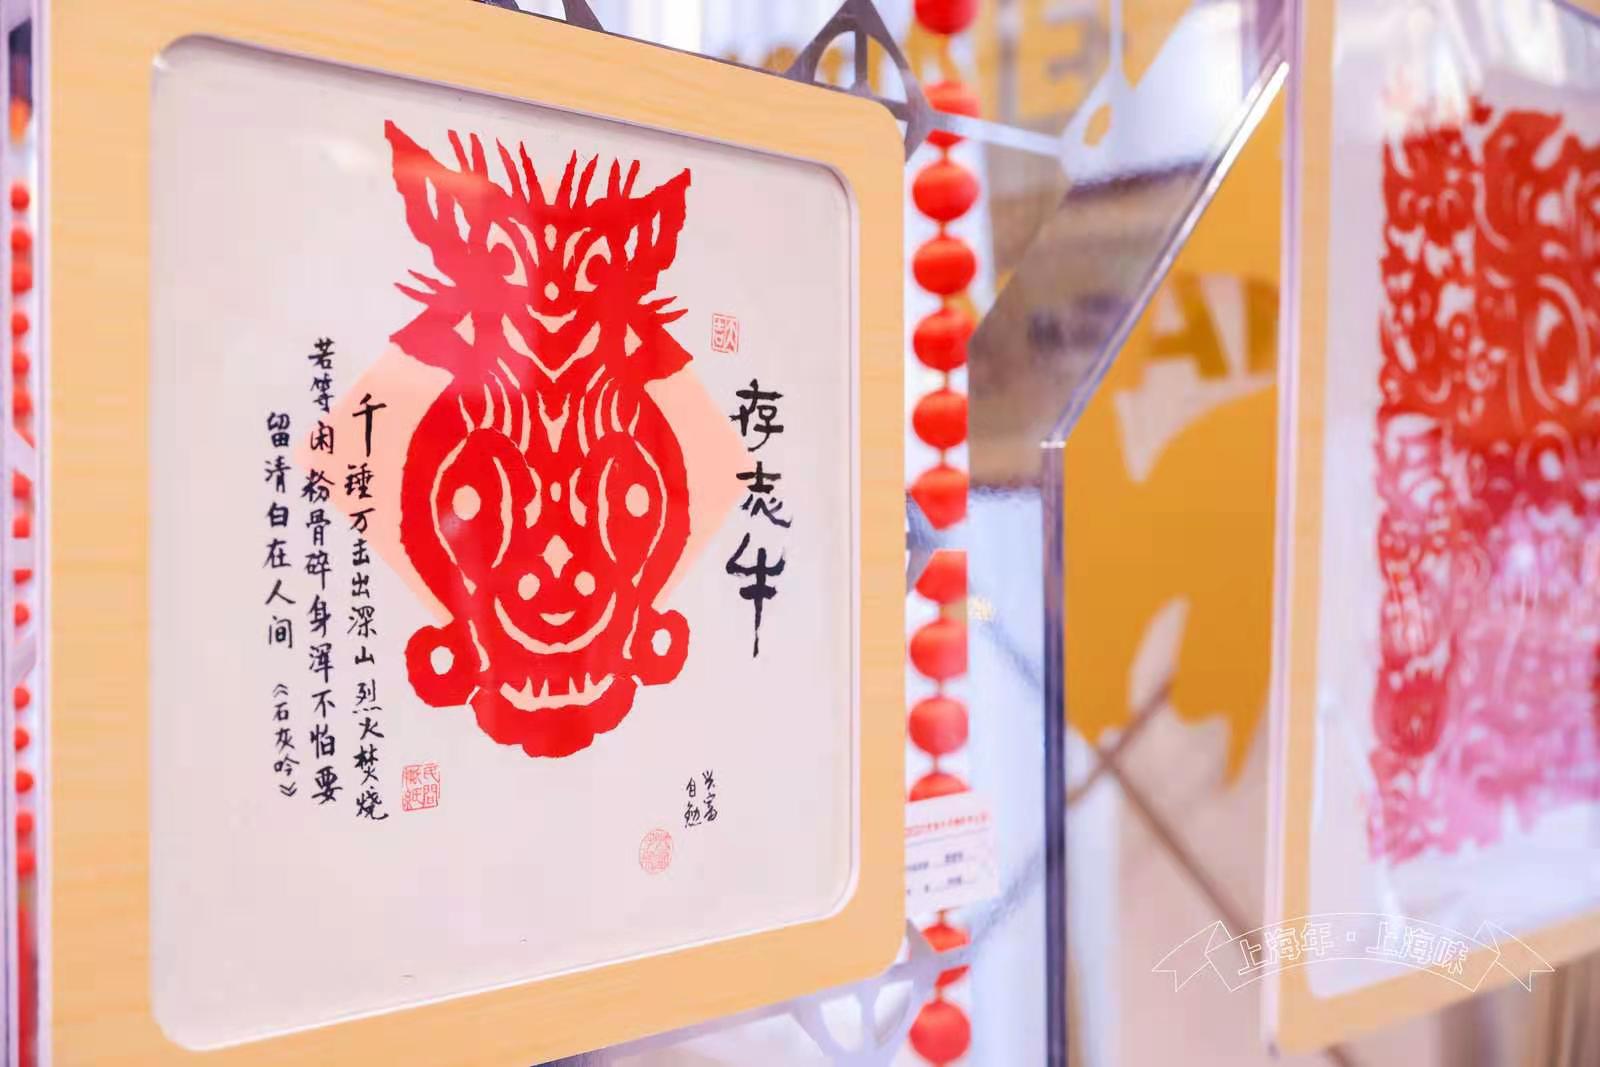 大吉
存志牛
千锤万击出深山烈火焚烧
若等闲粉骨碎身浑不怕要
留清白在人间《石灰吟》
民間
兴富
自勉
AD
上海年·上海味